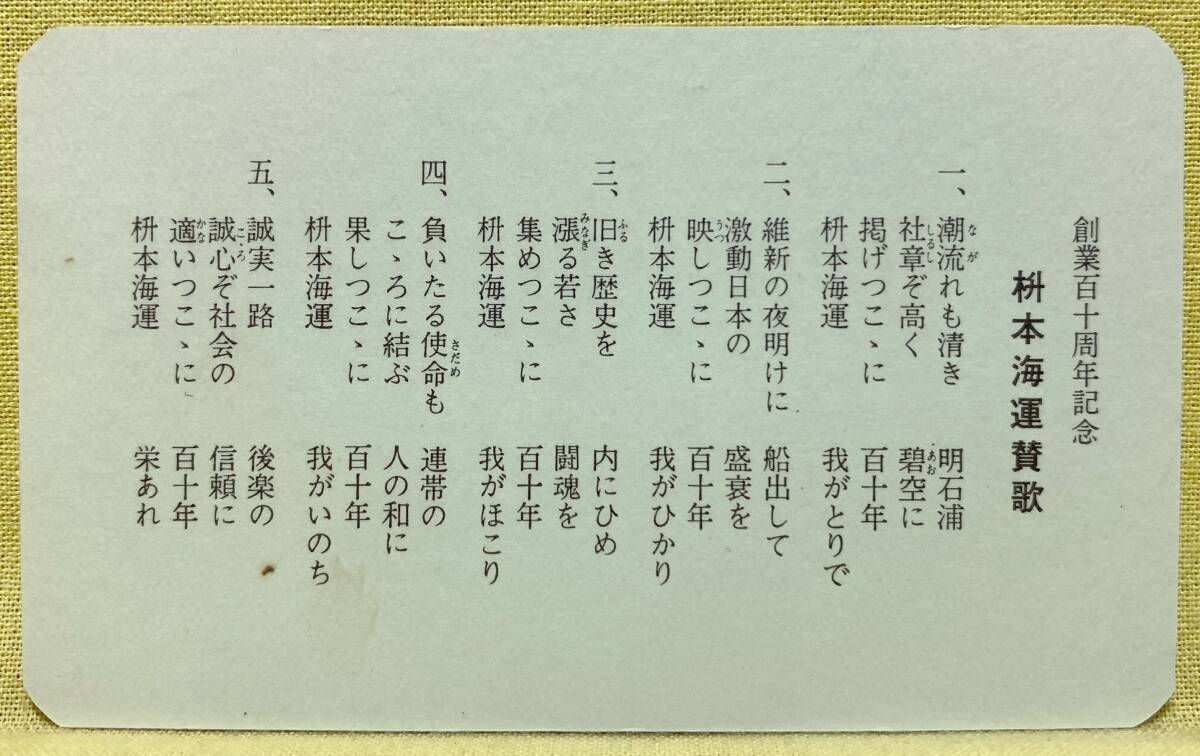 創業百十周年記念
枡本海運賛歌
一、潮流れも清き　明石浦
なが
社章ぞ高く　碧空に
しるし　あお
掲げつこゝに　百十年
枡本海運　我がとりで
二、維新の夜明けに　船出して
激動日本の　盛衰を
映しつこゝに　百十年
うつ
枡本海運　我がひかり
三、旧き歴史を　内にひめ
ふる
漲る若さ　闘魂を
みなぎ
集めつこゝに　百十年
枡本海運　我がほこり
四、負いたる使命も　連帯の
さだめ
こゝろに結ぶ　人の和に
果しつこゝに　百十年
枡本海運　我がいのち
五、誠実一路　後楽の
誠心ぞ社会の　信頼に
こころ
適いつこゝに　百十年
かな
枡本海運　栄あれ